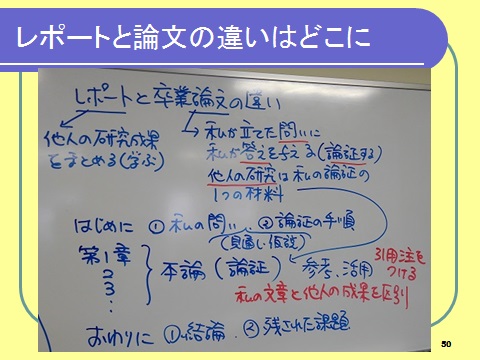 レポートと論文の違いはどこに
レポートと卒業論文の違い
他人の研究成果
をまとめる(学ぶ)
私が立てた問いに
私が答えを与える(論証する)
他人の研究は私の論証の
1つの材料
はじめに ①私の問い、②論証の手順
(見通し・仮説)
第1章
2
3
:
本論(論証)
参考、活用
引用注を
つける
私の文章と他人の成果を区別
おわりに ①結論、②残された課題
50